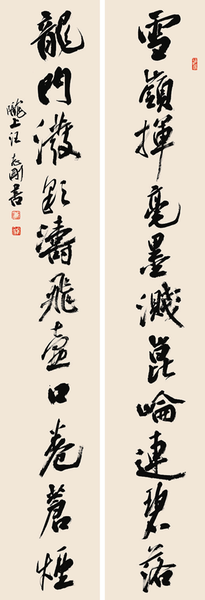 雪嶺揮毫墨濺崑崙連碧落
龍門潑彩濤飛壺口卷蒼煙
隴上汪志剛書